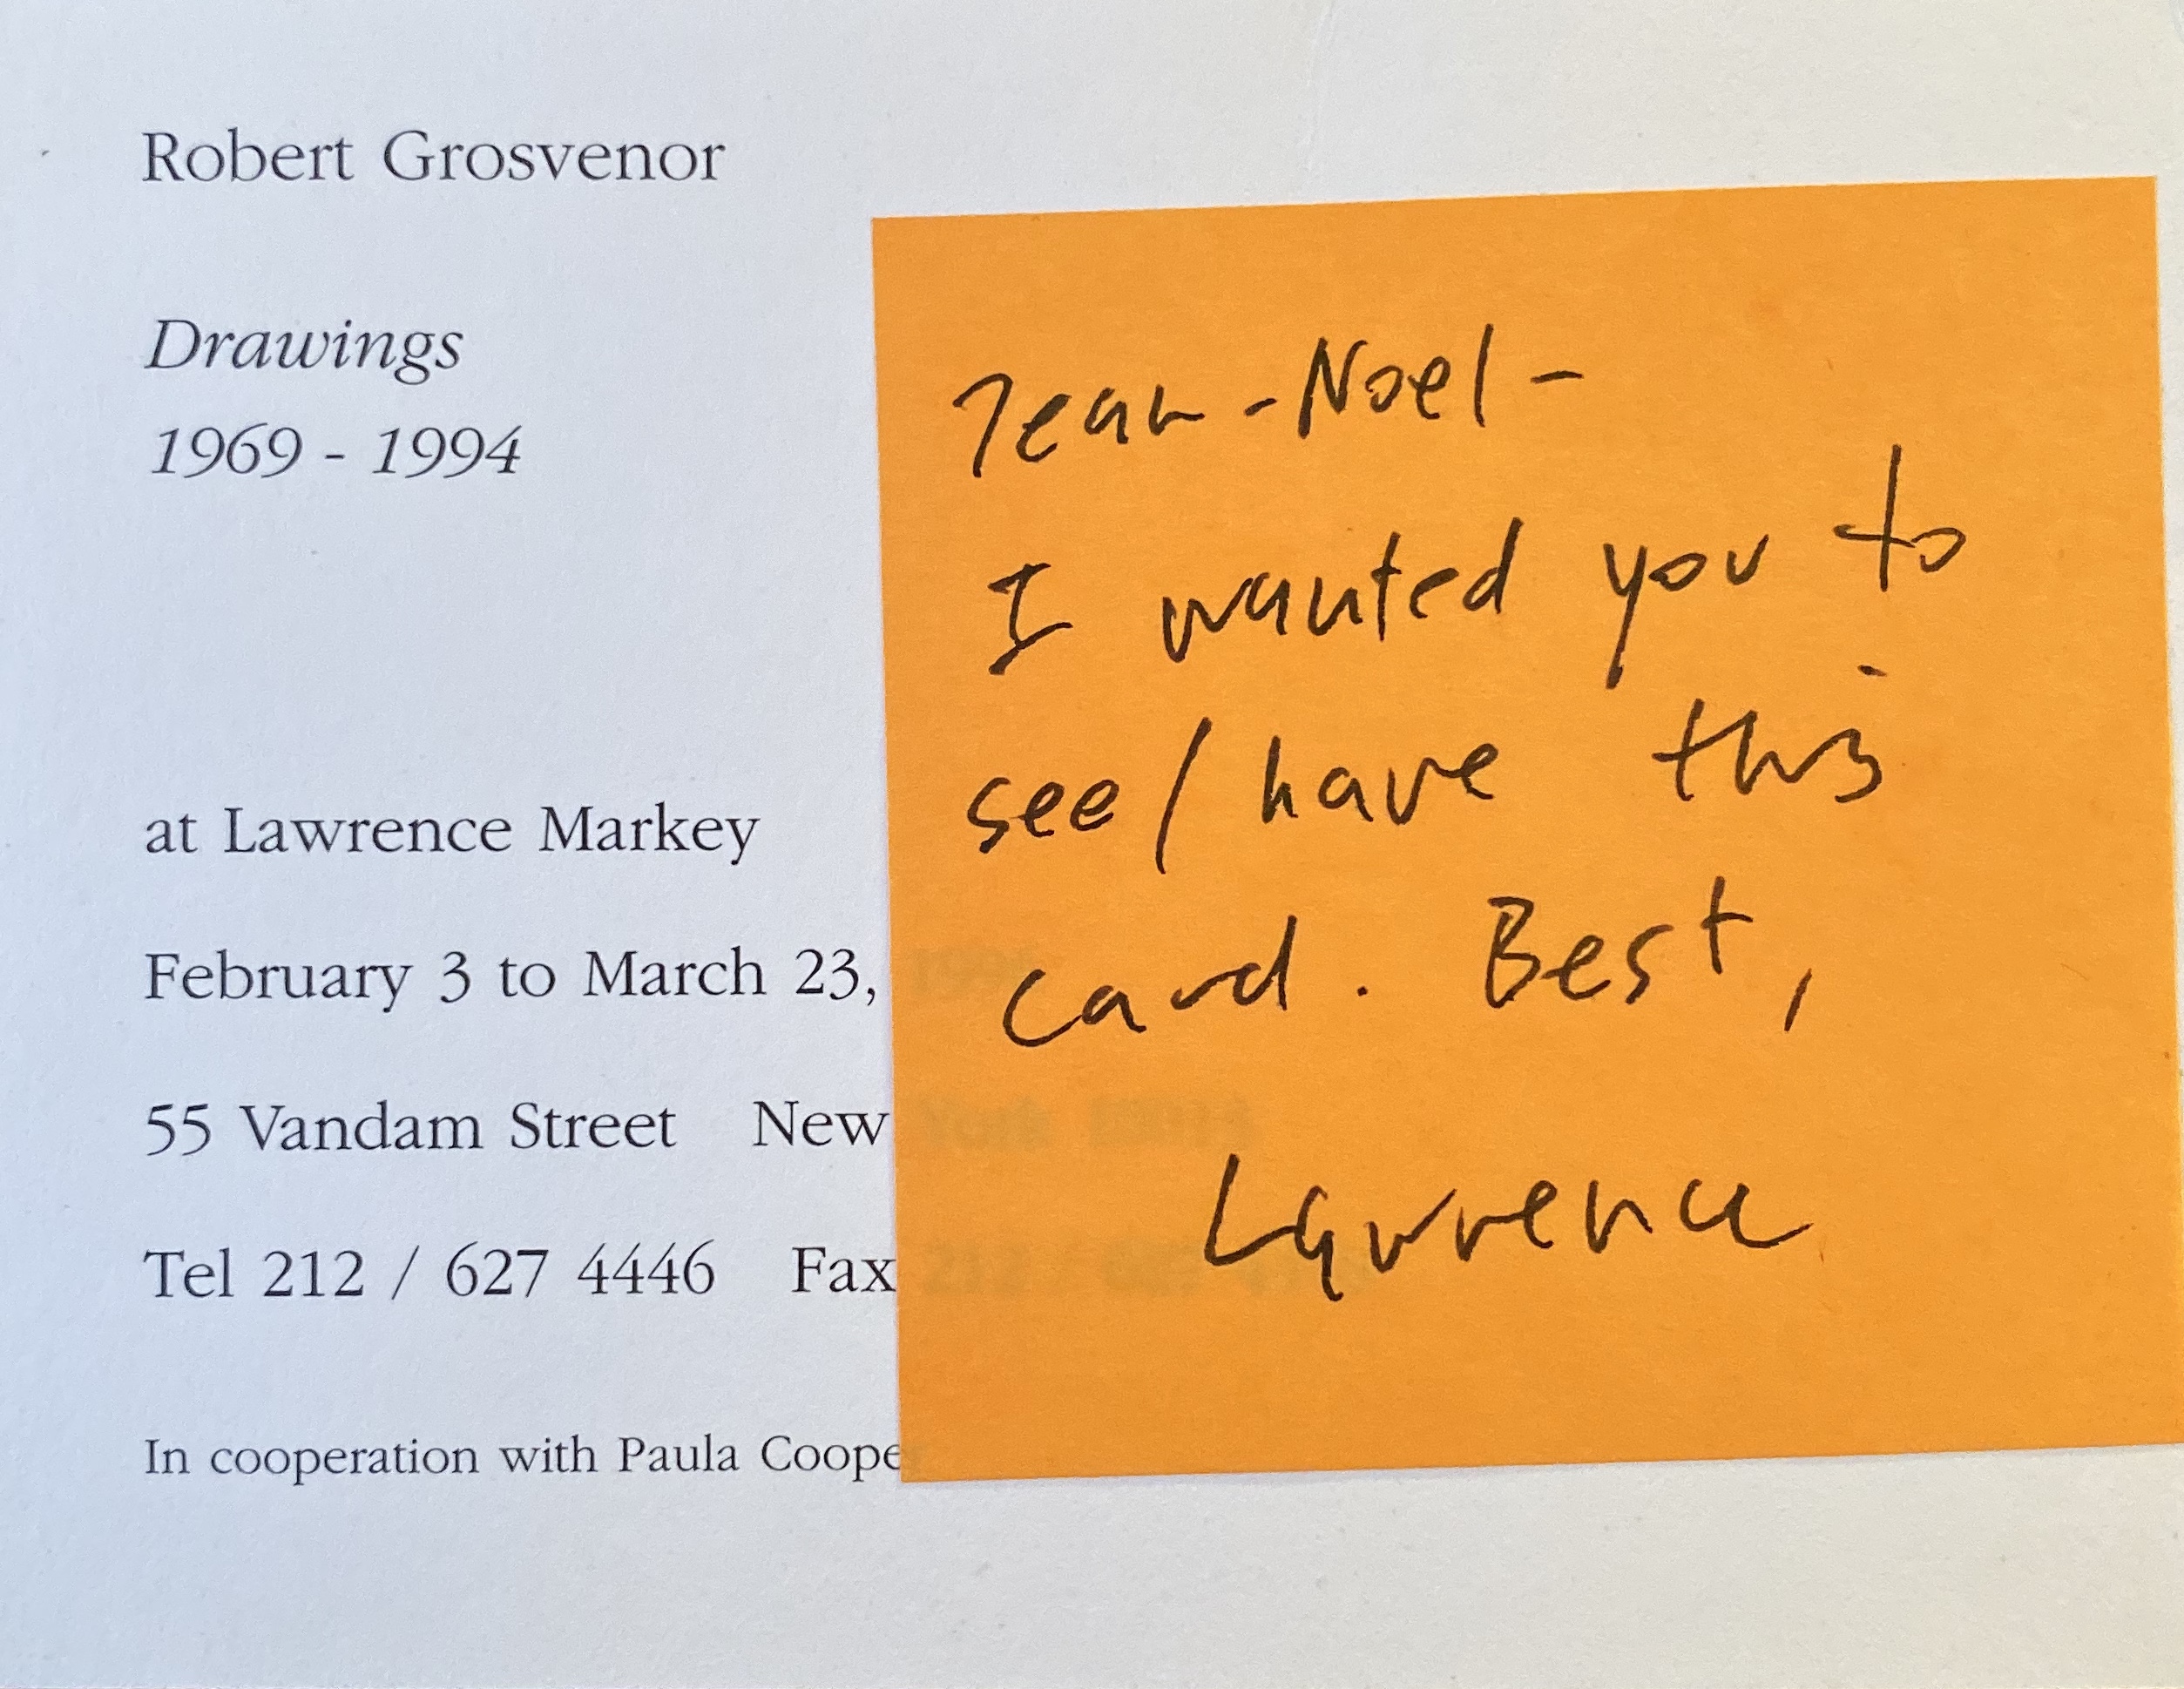 Robert Grosvenor
Drawings
1969 - 1994
at Lawrence Markey
February 3 to March 23,
55 Vandam Street New York
Tel 212 / 627 4446 Fax
In cooperation with Paula Cooper
Jean-Noel-
I wanted you to
see/have this
card. Best,
Lawrence